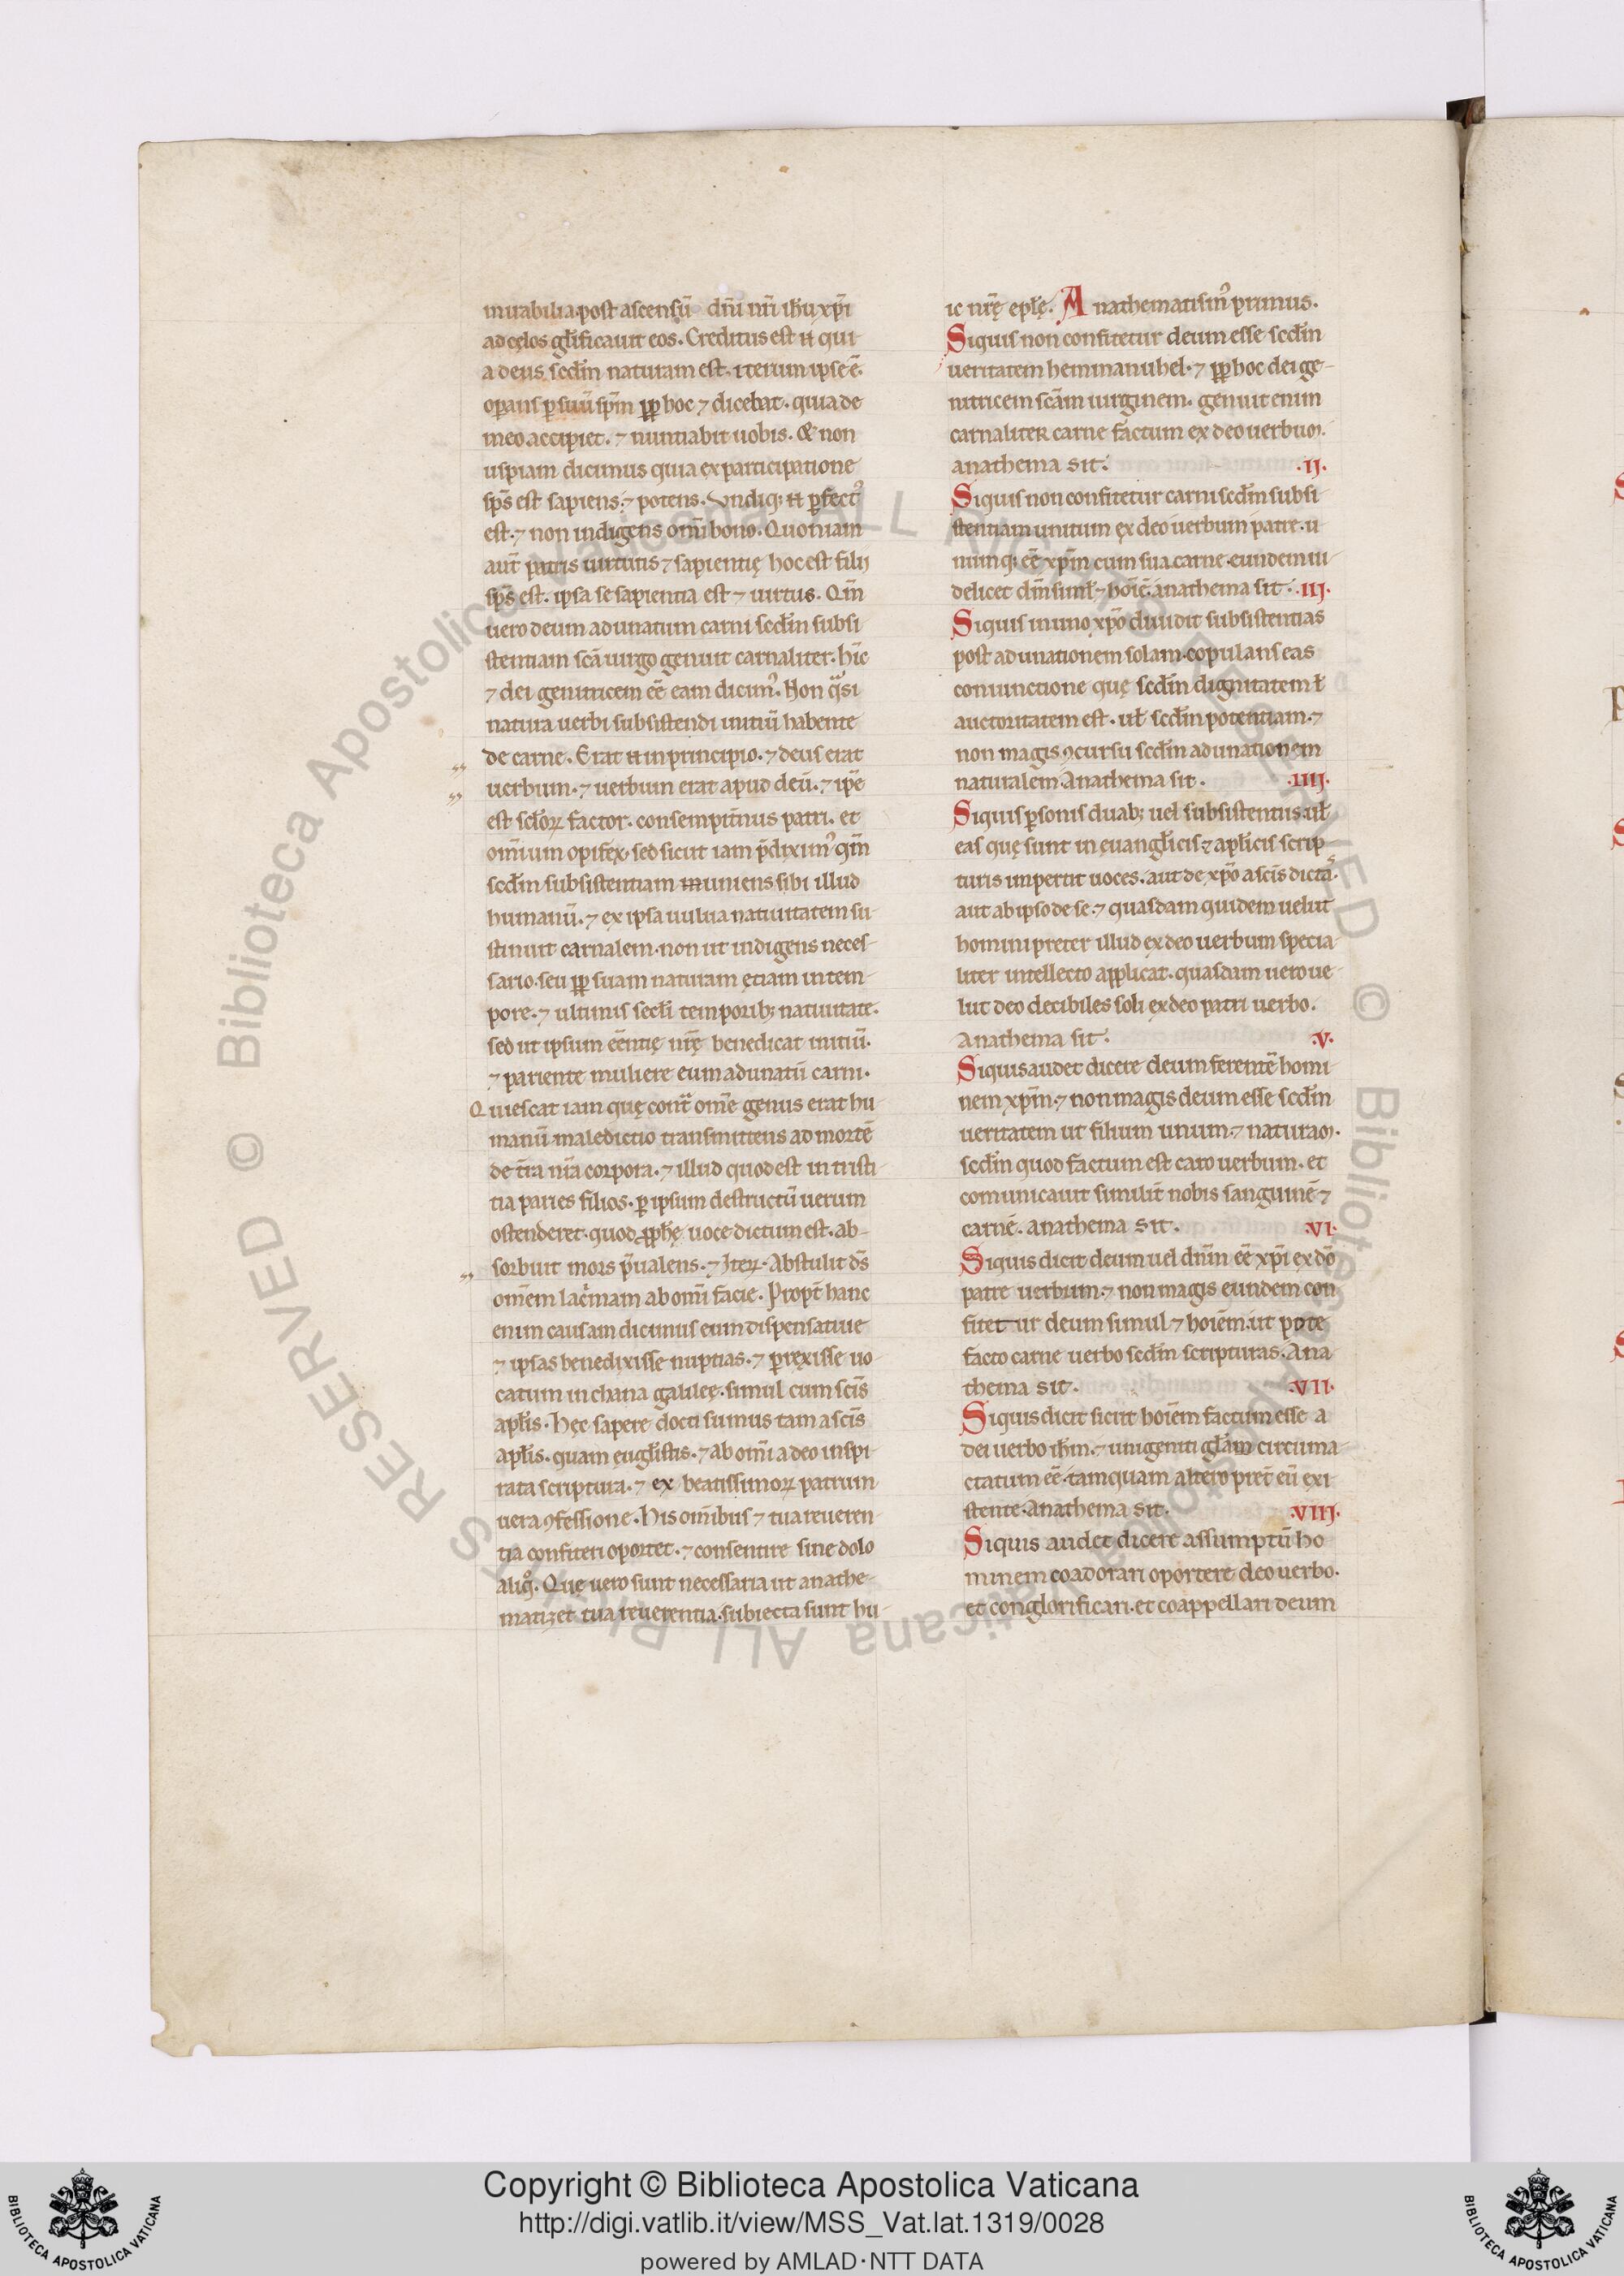 mirabilia. post ascensū dn̄i nr̄i ih̄u xp̄i
ad cęlos gl̄ificauit eos. Creditus est n̄ qui
a deus scdm̄ naturam est. iterum ipse ē.
op̄ans p̄ suū sp̄m pp̄ hoc ⁊ dicebat. quia de
meo accipiet. ⁊ nuntiabit uobis. & non
uspiam dicimus quia ex participatione
sp̄s est sapiens. ⁊ potens. Vndiq; n̄ p̄fect᾿
est. ⁊ non indigens om̄i bono. Quoniam
aut̄ patris uirtutis ⁊ sapientię hoc est filij
sp̄s est. ipsa se sapientia est ⁊ uirtus. Qm̄
uero deum adunatum carni scdm̄ subsi
stentiam sc̄a uirgo genuit carnaliter. hīc
⁊ dei genitricem eē eam dicim᾿. Non q̄si
natura uerbi subsistendi initiū habente
de carne. Erat n̄ in principio. ⁊ deus erat
uerbum. ⁊ uerbum erat apud deū. ⁊ ip̄e
est scl̄oꝝ factor. consempit̄nus patri. et
om̄ium opifex. sed sicut iam p̄dixim᾿ qm̄
scdm̄ subsistentiam uniens sibi illud
humanū. ⁊ ex ipsa uulua natiuitatem su
stinuit carnalem. non ut indigens neces-
sario. seu pp̄ suam naturam ętiam in tem-
pore. ⁊ ultimis secl̄i temporib; natiuitate.
sed ut ipsum eēntię nr̄ę benedicat initiū.
⁊ pariente muliere eum adunatū carni.
Quiescat iam quę cont̄ om̄e genus erat hu
manū maledictio transmittens ad mortē
de t̄ra nr̄a corpora. ⁊ illud quod est in tristi-
tia paries filios. p̄ ipsum destructū uerum
ostenderet. quod pp̄hę uoce dictum est. ab-
sorbuit mors p̄ualens. ⁊ Iteꝝ. Abstulit ds̄
om̄em lac̄mam ab om̄i facie. Propt̄ hanc
enim causam dicimus eum dispensatiue
⁊ ipsas benedixisse nuptias. ⁊ p̄rexisse uo
catum in chana galileę. simul cum scīs
apl̄is. Hęc sapere docti sumus tam a scīs
apl̄is. quam eugl̄istis. ⁊ ab om̄i a deo inspi-
rata scriptura. ⁊ ex beatissimoꝝ patrum
uera ꝯfessione. His om̄ibus ⁊ tua reueren-
tia confiteri oportet. ⁊ consentire sine dolo
aliq̊. Quę uero sunt necessaria ut anathe-
matizet tua reuerentia. subiecta sunt hu-
ic nr̄ę epl̄ę. Anathematism᾿ primus.
Siquis non confitetur deum esse scdm̄
ueritatem hemmanuhel. ⁊ pp̄ hoc dei ge-
nitricem scām uirginem. genuit enim
carnaliter carne factum ex deo uerbum.
anathema sit. .II.
Siquis non confitetur carni scdm̄ subsi-
stentiam unitum ex deo uerbum patre. u
numq; eē xp̄m cum sua carne. eundem ui
delicet dm̄ simul ⁊ hoīē. anathema sit. .III.
Siquis in uno xp̄o diuidit subsistentias
post adunationem solam. copulans eas
coniunctione quę scdm̄ dignitatem ł
auctoritatem est. ul̄ scdm̄ potentiam. ⁊
non magis ꝯcursu scdm̄ adunationem
naturalem. Anathema sit. .IIII.
Siquis p̄sonis duab; uel subsistentiis. ul̄
eas quę sunt in euangl̄icis ⁊ apl̄icis scrip
turis impertit uoces. aut de xp̄o a scīs dictas.
aut ab ipso de se. ⁊ quasdam quidem uelut
homini preter illud ex deo uerbum specia-
liter intellecto applicat. quasdam uero ue-
lut deo decibiles soli ex deo patri uerbo.
Anathema sit. .V.
Siquis audet dicere deum ferentē homi-
nem xp̄m. ⁊ non magis deum esse scdm̄
ueritatem ut filium unum. ⁊ naturam.
scdm̄ quod factum est caro uerbum. et
comunicauit similit̄ nobis sanguinē ⁊
carnē. anathema sit. .VI.
Siquis dicit deum uel dn̄m eē xp̄i ex dō
patre uerbum. ⁊ non magis eundem con
fitetur deum simul ⁊ hoīem. ut pote
facto carne uerbo scdm̄ scripturas. Ana
thema sit. .VII.
Siquis dicit sicut hoīem factum esse a
dei uerbo ih̄m. ⁊ unigeniti gl̄am circuma-
ctatum eē. tamquam altero pret̄ eū exi-
stente. Anathema sit. .VIII.
Siquis audet dicere assumptū ho
minem coadorari oportere deo uerbo.
et conglorificari. et coappellari deum
© Biblioteca Apostolica Vaticana ALL RIGHTS RESERVED © Biblioteca Apostolica Vaticana ALL RIGHTS RESERVED
Copyright © Biblioteca Apostolica Vaticana
http://digi.vatlib.it/view/MSS_Vat.lat.1319/0028
powered by AMLAD·NTT DATA
BIBLIOTECA APOSTOLICA VATICANA
BIBLIOTECA APOSTOLICA VATICANA